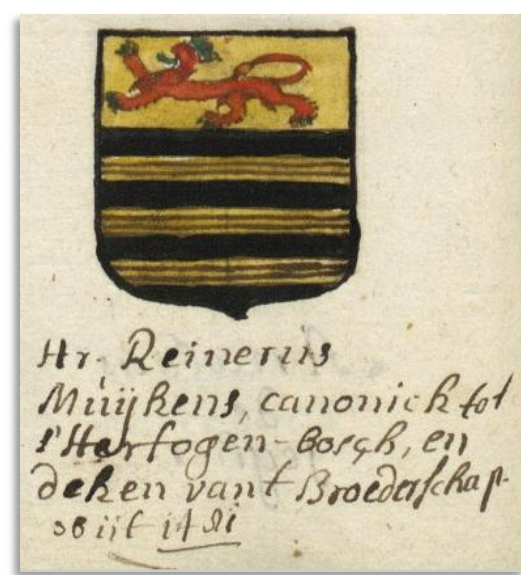 Hr. Reinerus
Muijkens, canonick tot
s'Hertogen-bosch, en
deken vant Broederschap.
obijt 1481